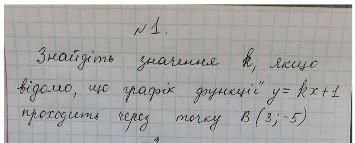 №1.
Знайдіть значення k, якщо
відомо, що графік функції y = kx+1
проходить через точку B (3; -5)